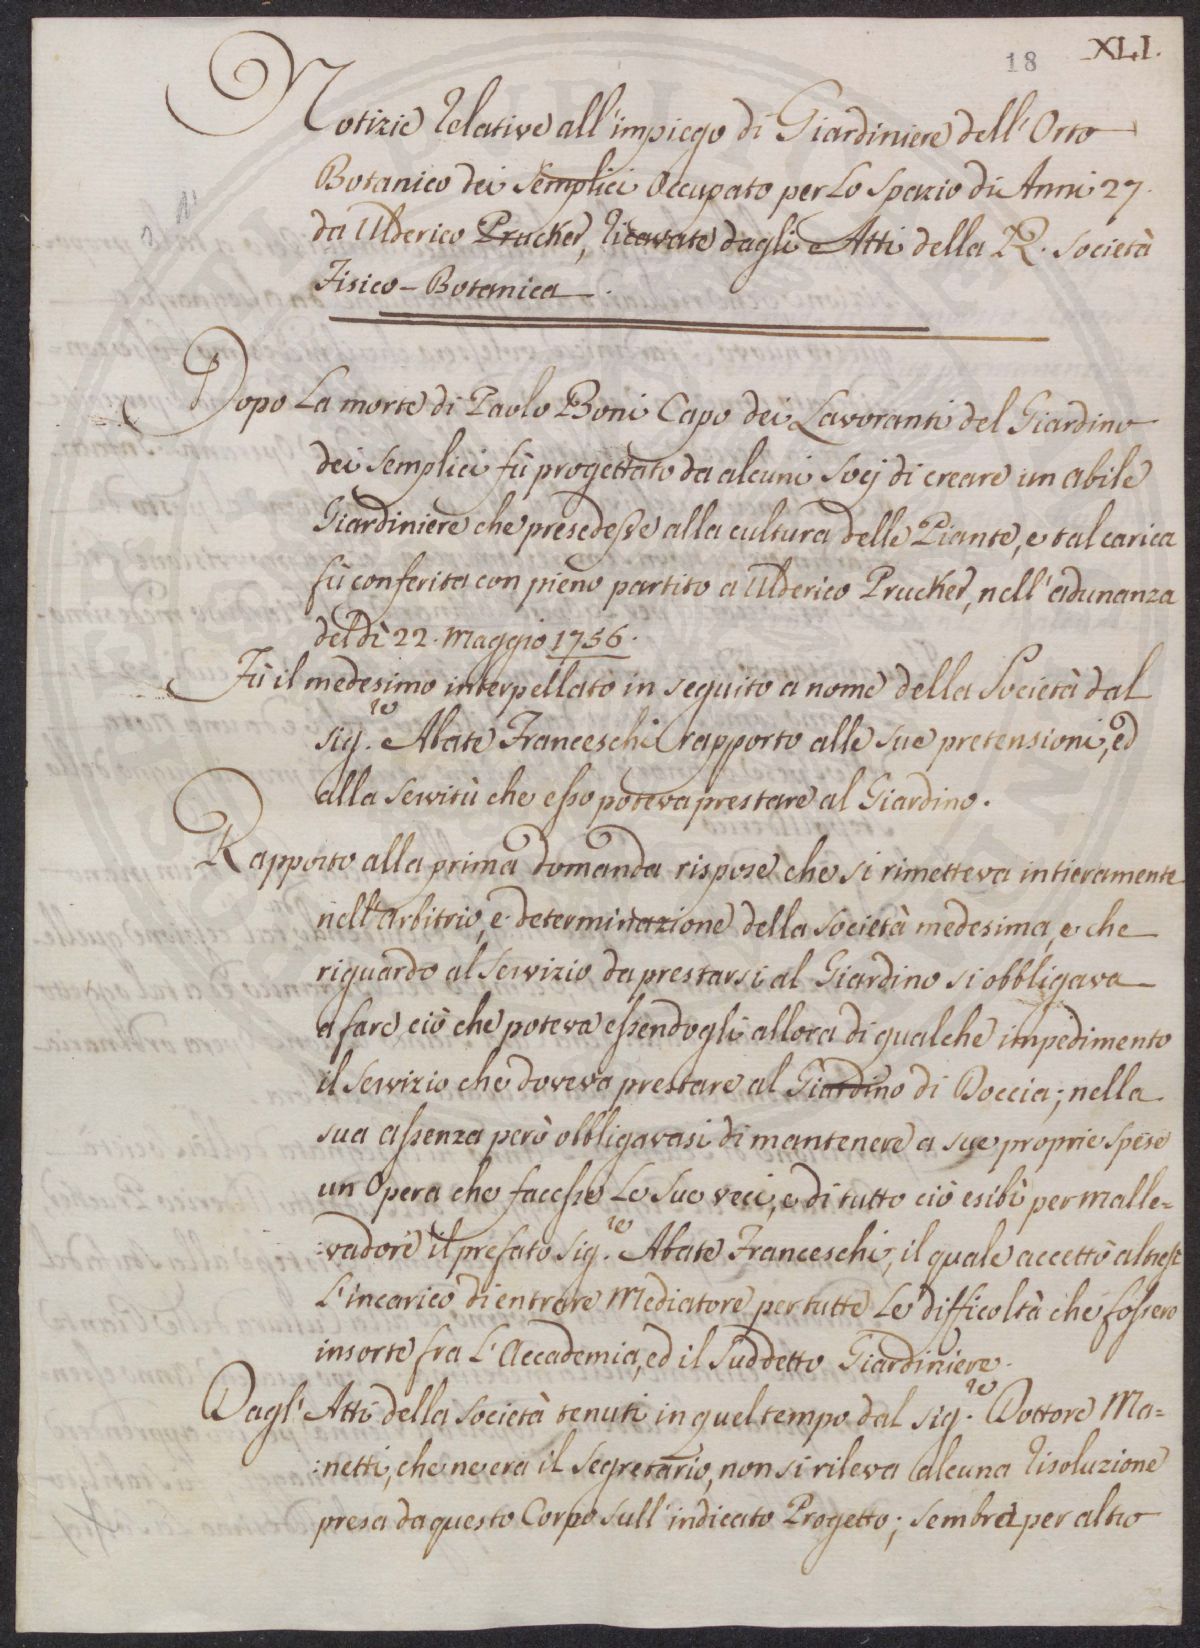 18 XLI.
Notizie Relative all'impiego di Giardiniere dell'Orto
Botanico dei Semplici Occupato per Lo Spazio di Anni 27.
da Ulderico Prucker, Ricavate dagli Atti della R. Società
Fisico-Botanica.
Dopo La morte di Paolo Boni Capo dei Lavoranti del Giardino
dei Semplici fù progettato da alcuni Socj di creare un abile
Giardiniere che presedesse alla cultura delle Piante, e tal carica
fù conferita con pieno partito a Ulderico Prucker, nell'adunanza
del dì 22. Maggio 1756.
Fù il medesimo interpellato in seguito a nome della Società dal
Sig.re Abate Franceschi rapporto alle sue pretensioni, ed
alla Servitù che esso poteva prestare al Giardino.
Rapporto alla prima domanda rispose che si rimetteva intieramente
nell'arbitrio, e determinazione della Società medesima, e che
riguardo al Servizio da prestarsi al Giardino si obbligava
a fare ciò che poteva essendogli allora di qualche impedimento
il Servizio che doveva prestare al Giardino di Doccia; nella
sua assenza però obbligavasi di mantenere a sue proprie spese
un Opera che facesse Le Sue veci, e di tutto ciò esibì per malle=
:vadore il prefato Sig.re Abate Franceschi, il quale accettò altresì
L'incarico di entrare Mediatore per tutte Le difficoltà che fossero
insorte fra L'Accademia, ed il Suddetto Giardiniere.
Dagl'Atti della Società tenuti in quel tempo dal Sig.re Dottore Ma=
:netti, che ne era il Segretario, non si rileva alcuna Risoluzione
presa da questo Corpo sull'indicato Progetto; Sembra per altro